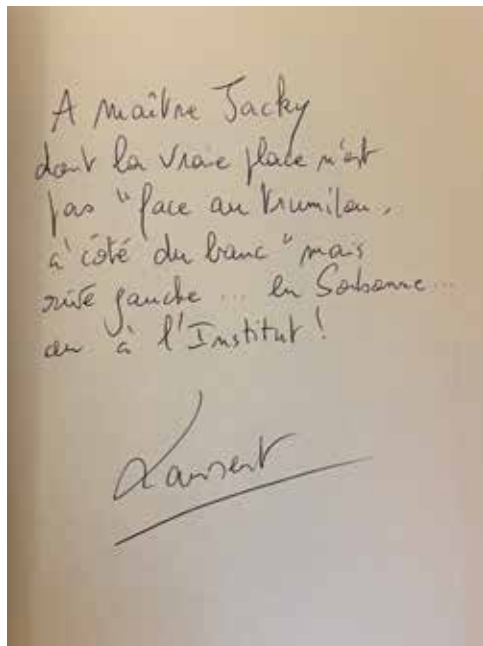 A maître Jacky
dont la vraie place n'est
pas "face au Trumilou,
à côté du banc" mais
rive gauche ... en Sorbonne ...
ou à l'Institut !
Laurent